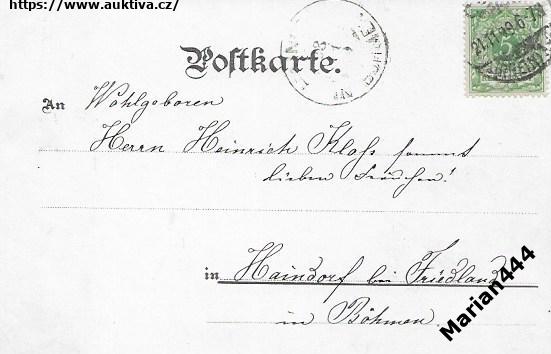 https://www.auktiva.cz/
Postkarte.
An Wohlgeboren
Herrn Heinrich Klohs sammt
lieben
in Haindorf bei Friedland
in Böhmen.
5
Marian444